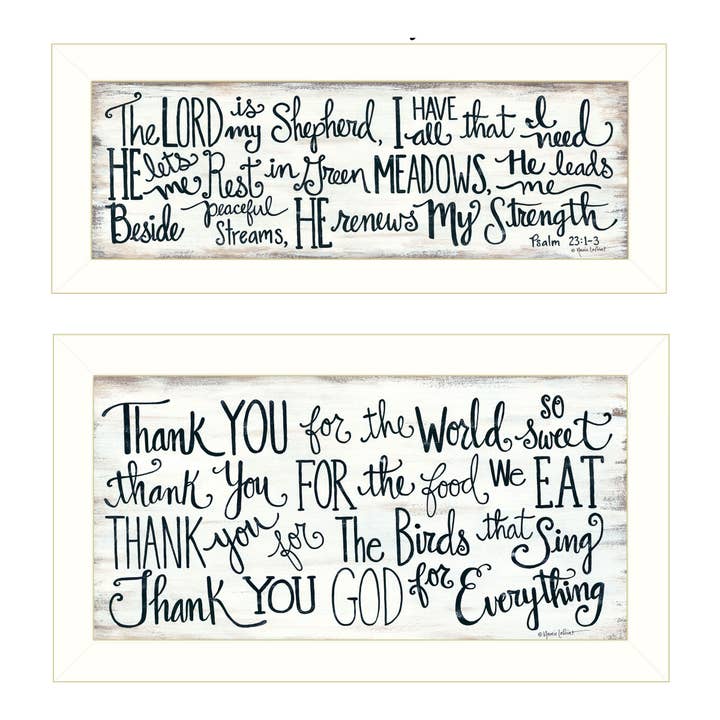 The LORD is my Shepherd, I HAVE all that I need
HE lets me Rest in Green MEADOWS, He leads me
Beside peaceful Streams, HE renews My Strength
Psalm 23:1-3
Thank YOU for the World so sweet
thank you FOR the food we EAT
THANK you for The Birds that Sing
Thank YOU GOD for Everything